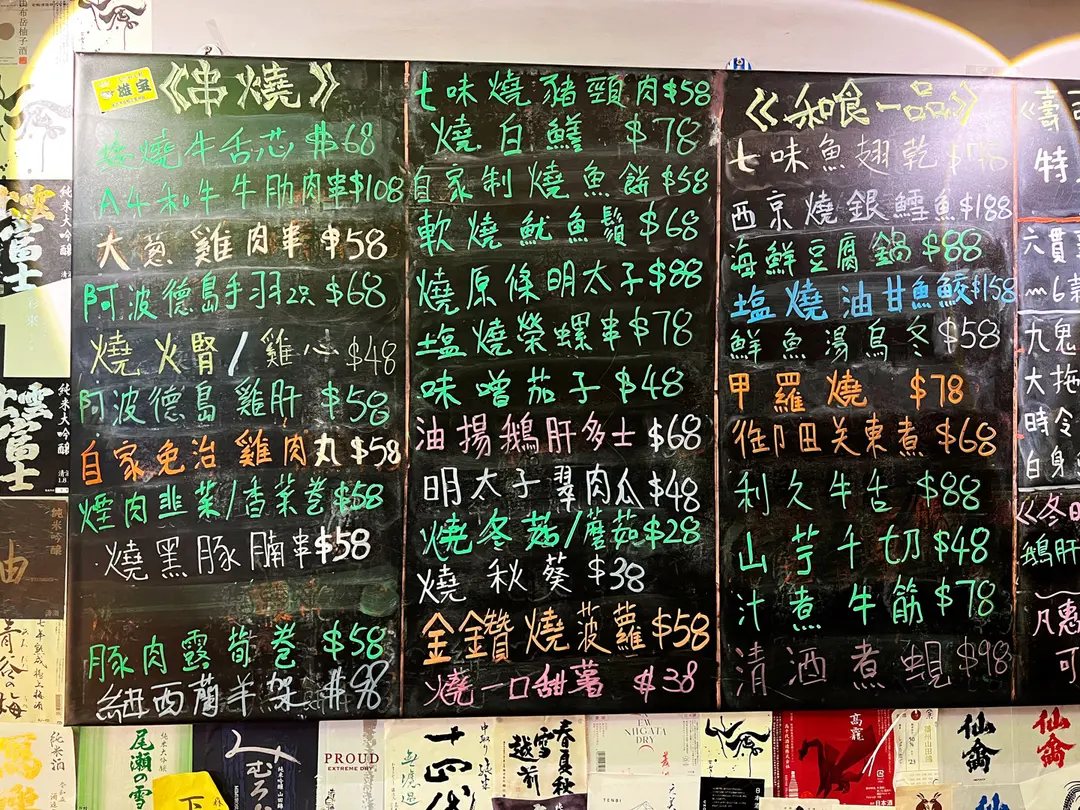 《串燒》
塩燒牛舌芯 $68
A4和牛牛肋肉串$108
大葱雞肉串 $58
阿波德島手羽2只 $68
燒火腎/雞心 $48
阿波德島雞肝 $58
自家免治雞肉丸$58
煙肉韭菜/香菜卷$58
燒黑豚腩串$58
豚肉露筍卷 $58
紐西蘭羊架 $98
七味燒豬頸肉$58
燒白鱔 $78
自家制燒魚餅$58
軟燒魷魚鬚$68
燒原條明太子$88
塩燒榮螺串$78
味噌茄子$48
油揚鵝肝多士$68
明太子翠肉瓜$48
燒冬菇/蘑菇$28
燒秋葵 $38
金鑽燒菠蘿$58
燒一口甜薯 $38
《和食一品》
七味魚翅乾
西京燒銀鱈魚$188
海鮮豆腐鍋$88
塩燒油甘魚鮫$158
鮮魚湯烏冬$58
甲羅燒 $78
御田关東煮$68
利久牛舌 $88
山芋千切$48
汁煮牛筋$78
清酒煮蜆$98
特
六貫
九鬼
大拖
時令
白身
鵝肝
凡惠
可
純米大吟醸
雲
富士
純米大吟醸
雲
富士
純米吟醸
純米酒
純米大吟醸
尾瀬の雪
PROUD
EXTREME DRY
十四代
春夏秋
雪
越前
NIIGATA
DRY
仙禽
仙禽